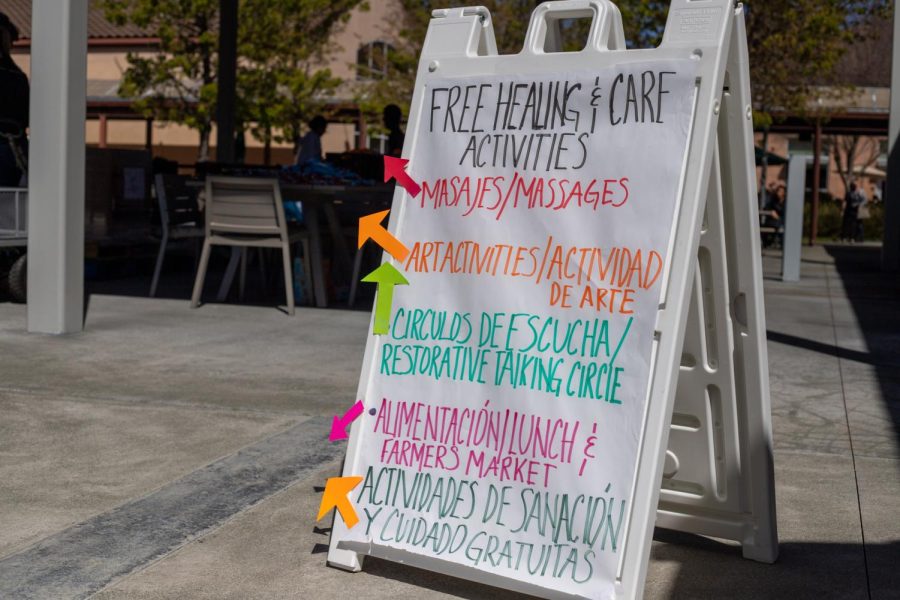 FREE HEALING & CARE
ACTIVITIES
MASAJES/MASSAGES
ART ACTIVITIES/ACTIVIDAD
DE ARTE
CIRCULOS DE ESCUCHA/
RESTORATIVE TALKING CIRCLE
ALIMENTACIÓN/LUNCH &
FARMERS MARKET
ACTIVIDADES DE SANACIÓN
Y CUIDADO GRATUITAS